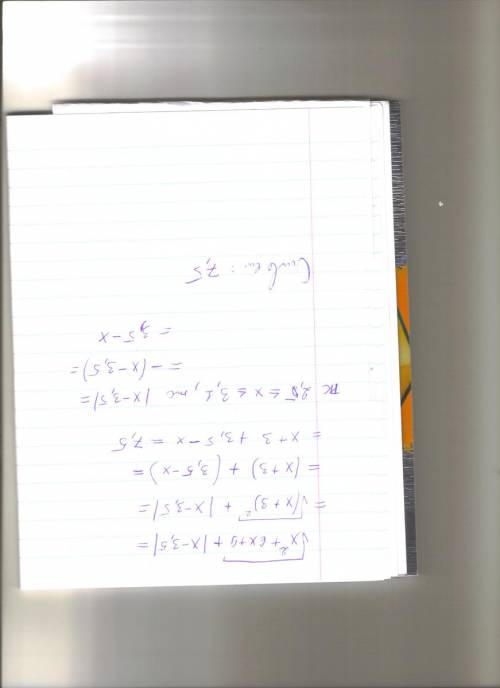 √x²+6x+9 + |x-3,5| =
= √(x+3)² + |x-3,5| =
= (x+3) + (3,5-x) =
= x+3 +3,5-x = 7,5
2,5 ≤ x ≤ 3,1, то |x-3,5| =
= -(x-3,5) =
= 3,5-x
Ответ: 7,5